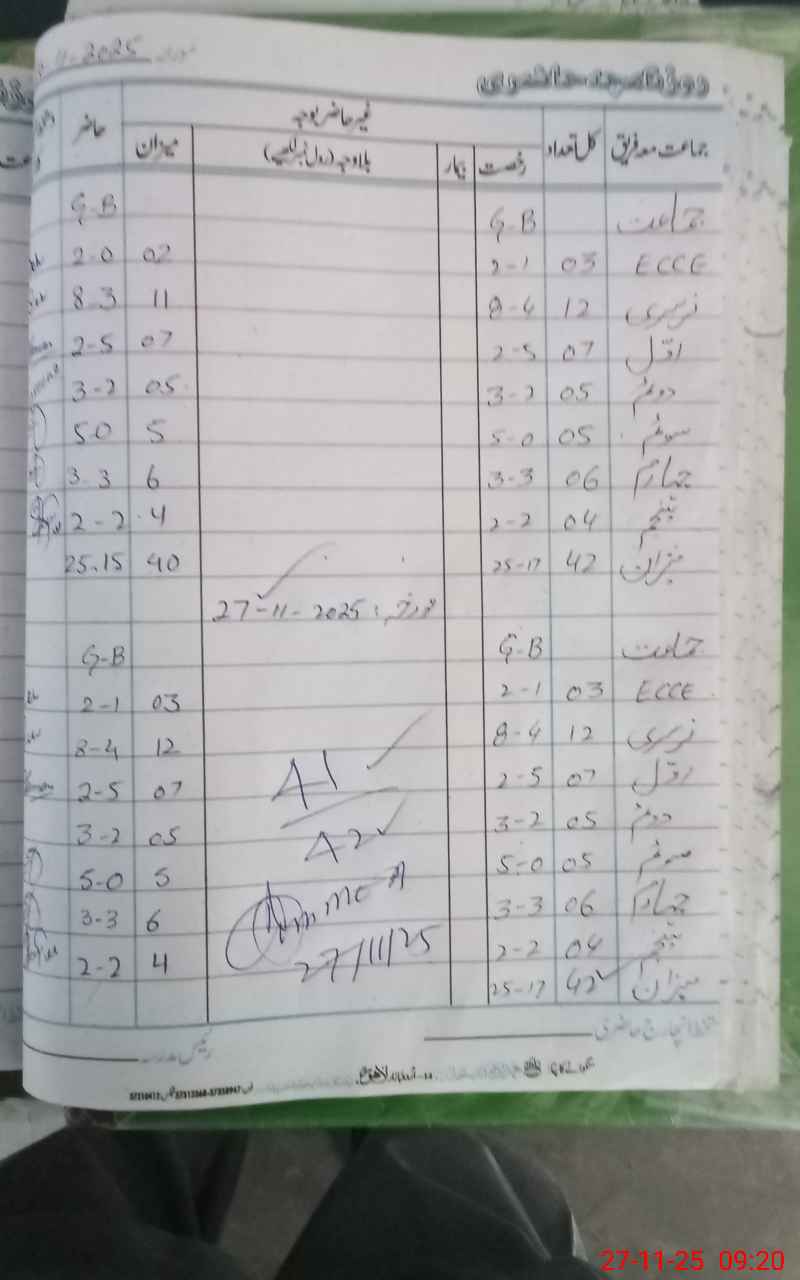 11-2025 مورخہ
روزنامچہ حاضری
جماعت معہ فریق کل تعداد غیر حاضر بوجہ حاضر
رخصت بیمار بلاوجہ (رول نمبر لکھیے) میزان
جماعت G-B G-B
ECCE 03 2-1 02 2-0
نرسری 12 8-4 11 8-3
اول 07 2-5 07 2-5
دوئم 05 3-2 05 3-2
سوئم 05 5-0 5 5-0
چہارم 06 3-3 6 3-3
پنجم 04 2-2 4 2-2
میزان 42 25-17 40 25-15
مورخہ: 27-11-2025
جماعت G-B G-B
ECCE 03 2-1 03 2-1
نرسری 12 8-4 12 8-4
اول 07 2-5 07 2-5
دوئم 05 3-2 05 3-2
سوئم 05 5-0 5 5-0
چہارم 06 3-3 6 3-3
پنجم 04 2-2 4 2-2
میزان 42 25-17
41
42
MEA
27/11/25
دستخط انچارج حاضری رئیس مدرسہ
27-11-25 09:20